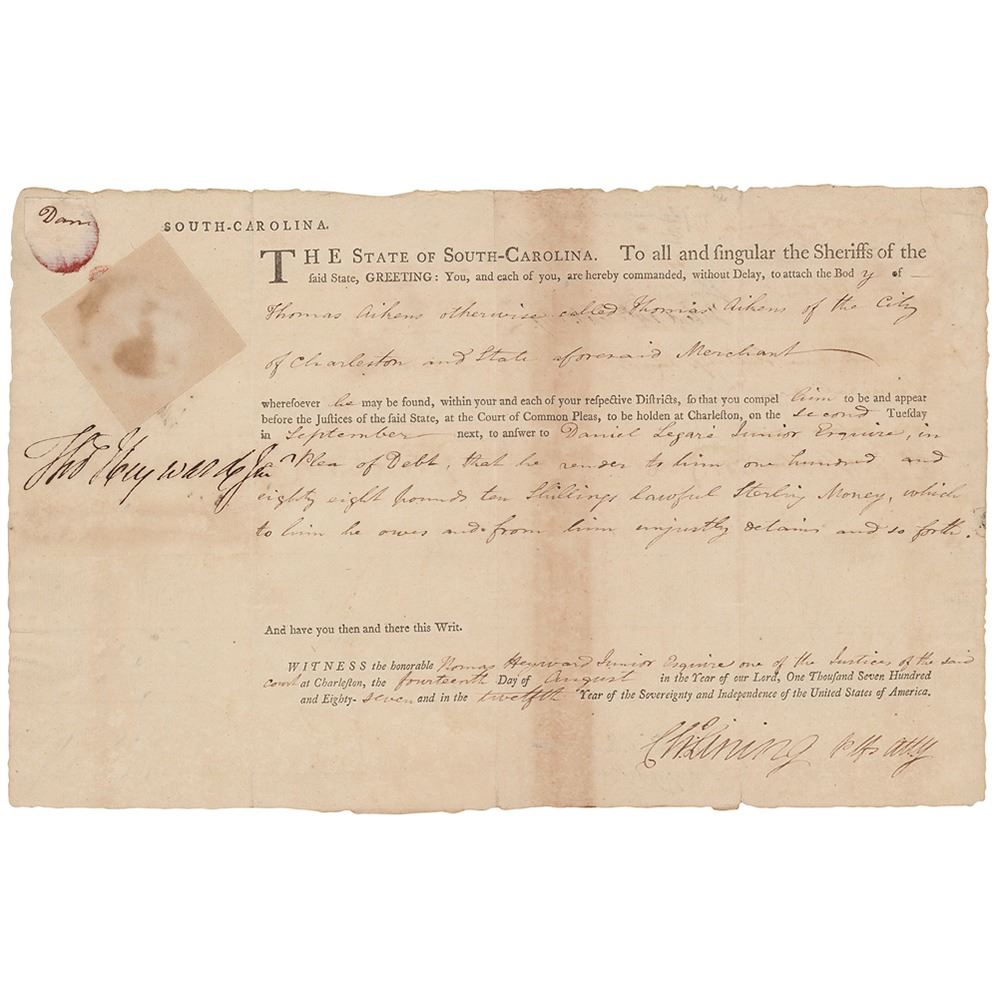 Dan
SOUTH-CAROLINA.
THE STATE OF SOUTH-CAROLINA. To all and ſingular the Sheriffs of the
ſaid State, GREETING: You, and each of you, are hereby commanded, without Delay, to attach the Bod y of
Thomas Aikens otherwise called Thomas Aikens of the City
of Charleston and State aforesaid Merchant
whereſoever he may be found, within your and each of your reſpective Diſtricts, ſo that you compel him to be and appear
before the Juſtices of the ſaid State, at the Court of Common Pleas, to be holden at Charleſton, on the second Tueſday
in September next, to anſwer to Daniel Legaré Junior Esquire, in
a Plea of Debt, that he render to him one hundred and
eighty eight pounds ten Shillings lawful Sterling Money, which
to him he owes and from him unjustly detains and so forth.
Thos Heyward Jun
And have you then and there this Writ.
WITNESS the honorable Thomas Heyward Junior Esquire one of the Justices of the said
court at Charleſton, the fourteenth Day of August in the Year of our Lord, One Thouſand Seven Hundred
and Eighty- seven and in the twelfth Year of the Sovereignty and Independence of the United States of America.
Chs Lining atty